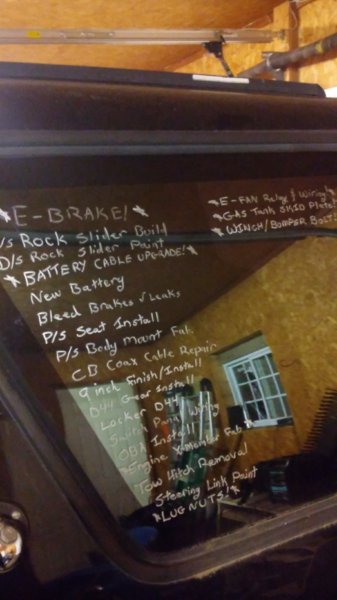 *E-BRAKE!*
/s Rock Slider Build
D/s Rock Slider Paint
*BATTERY CABLE UPGRADE!*
New Battery
Bleed Brakes √ Leaks
P/s Seat Install
P/s Body Mount Fab.
CB Coax Cable Repair
9 inch Finish/Install
D44 Gear Install
Locker D44
Switch Panel Wiring
OBA Install
*Engine X-Member Fab*
Tow Hitch Removal
Steering Link Paint
*LUG NUTS!*
*E-FAN Relay & Wiring!*
*GAS Tank SKID Plate!
*WINCH/BUMPER BOLTS!